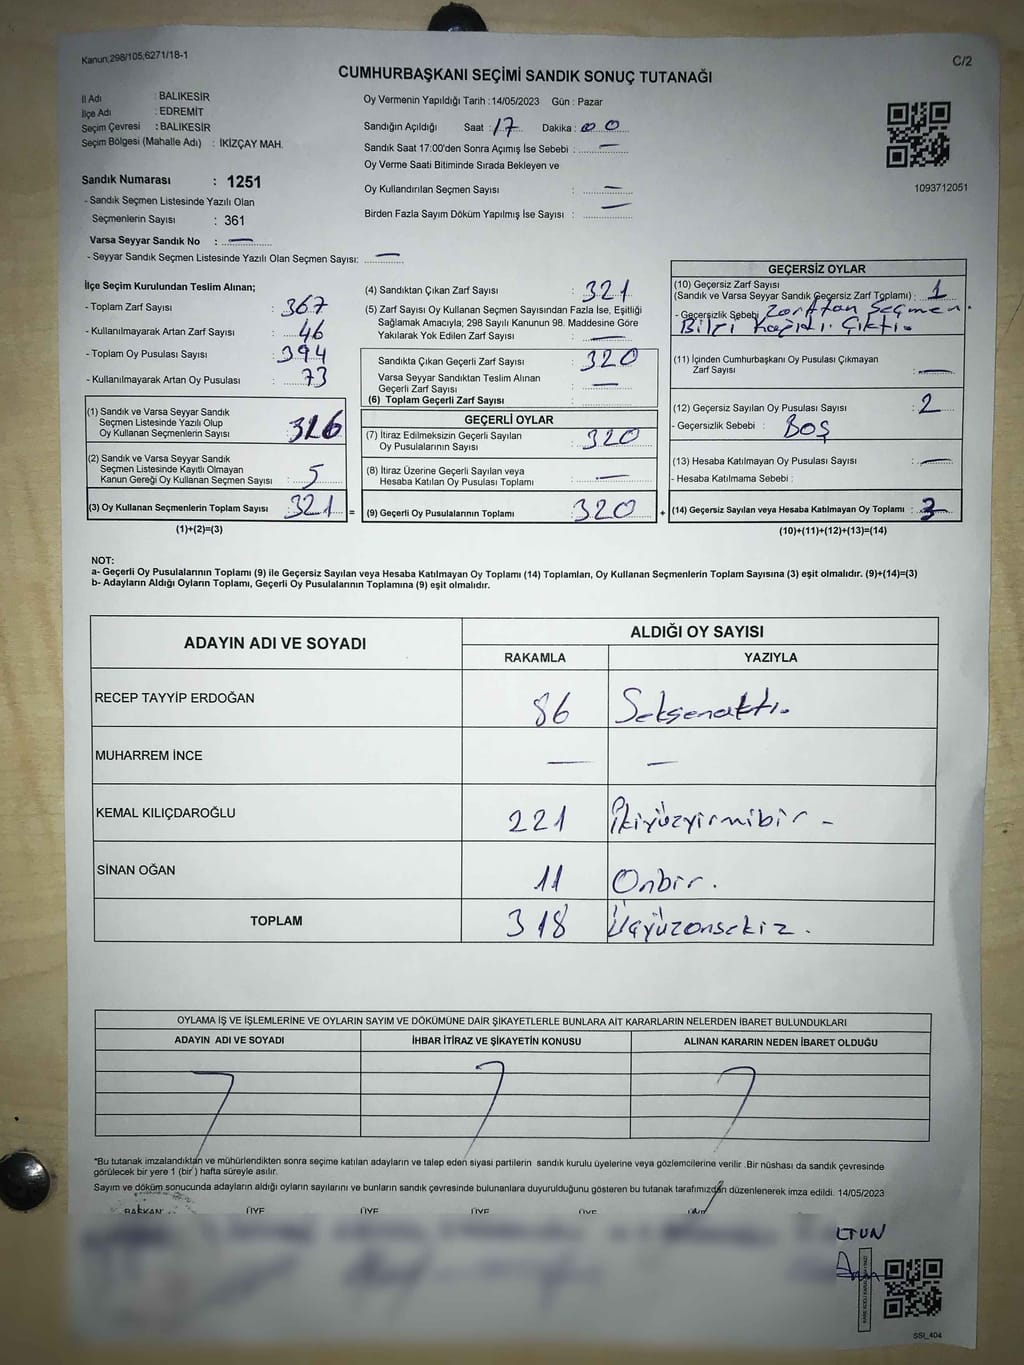 Kanun;298/105;6271/18-1
C/2
CUMHURBAŞKANI SEÇİMİ SANDIK SONUÇ TUTANAĞI
İl Adı : BALIKESİR
İlçe Adı : EDREMİT
Seçim Çevresi : BALIKESİR
Seçim Bölgesi (Mahalle Adı) : İKİZÇAY MAH.
Sandık Numarası : 1251
- Sandık Seçmen Listesinde Yazılı Olan
Seçmenlerin Sayısı : 361
Varsa Seyyar Sandık No : —
- Seyyar Sandık Seçmen Listesinde Yazılı Olan Seçmen Sayısı: —
Oy Vermenin Yapıldığı Tarih :14/05/2023 Gün : Pazar
Sandığın Açıldığı Saat : 17 Dakika : 00
Sandık Saat 17:00'den Sonra Açımış İse Sebebi : —
Oy Verme Saati Bitiminde Sırada Bekleyen ve
Oy Kullandırılan Seçmen Sayısı : —
Birden Fazla Sayım Döküm Yapılmış İse Sayısı : —
1093712051
İlçe Seçim Kurulundan Teslim Alınan;
- Toplam Zarf Sayısı : 367
- Kullanılmayarak Artan Zarf Sayısı : 46
- Toplam Oy Pusulası Sayısı : 394
- Kullanılmayarak Artan Oy Pusulası : 73
(1) Sandık ve Varsa Seyyar Sandık
Seçmen Listesinde Yazılı Olup
Oy Kullanan Seçmenlerin Sayısı : 316
(2) Sandık ve Varsa Seyyar Sandık
Seçmen Listesinde Kayıtlı Olmayan
Kanun Gereği Oy Kullanan Seçmen Sayısı : 5
(3) Oy Kullanan Seçmenlerin Toplam Sayısı : 321 =
(1)+(2)=(3)
(4) Sandıktan Çıkan Zarf Sayısı : 321
(5) Zarf Sayısı Oy Kullanan Seçmen Sayısından Fazla İse, Eşitliği
Sağlamak Amacıyla; 298 Sayılı Kanunun 98. Maddesine Göre
Yakılarak Yok Edilen Zarf Sayısı : —
Sandıkta Çıkan Geçerli Zarf Sayısı : 320
Varsa Seyyar Sandıktan Teslim Alınan
Geçerli Zarf Sayısı : —
(6) Toplam Geçerli Zarf Sayısı :
GEÇERLİ OYLAR
(7) İtiraz Edilmeksizin Geçerli Sayılan
Oy Pusulalarının Sayısı : 320
(8) İtiraz Üzerine Geçerli Sayılan veya
Hesaba Katılan Oy Pusulası Toplamı : —
(9) Geçerli Oy Pusulalarının Toplamı : 320 +
GEÇERSİZ OYLAR
(10) Geçersiz Zarf Sayısı
(Sandık ve Varsa Seyyar Sandık Geçersiz Zarf Toplamı) : 1
- Geçersizlik Sebebi : Zarftan Seçmen
Bilgi Kağıdı Çıktı.
(11) İçinden Cumhurbaşkanı Oy Pusulası Çıkmayan
Zarf Sayısı : —
(12) Geçersiz Sayılan Oy Pusulası Sayısı : 2
- Geçersizlik Sebebi : BOŞ
(13) Hesaba Katılmayan Oy Pusulası Sayısı : —
- Hesaba Katılmama Sebebi :
(14) Geçersiz Sayılan veya Hesaba Katılmayan Oy Toplamı : 3
(10)+(11)+(12)+(13)=(14)
NOT:
a- Geçerli Oy Pusulalarının Toplamı (9) ile Geçersiz Sayılan veya Hesaba Katılmayan Oy Toplamı (14) Toplamları, Oy Kullanan Seçmenlerin Toplam Sayısına (3) eşit olmalıdır. (9)+(14)=(3)
b- Adayların Aldığı Oyların Toplamı, Geçerli Oy Pusulalarının Toplamına (9) eşit olmalıdır.
ADAYIN ADI VE SOYADI
ALDIĞI OY SAYISI
RAKAMLA YAZIYLA
RECEP TAYYİP ERDOĞAN 86 Seksenaltı.
MUHARREM İNCE — —
KEMAL KILIÇDAROĞLU 221 İkiyüzyirmibir -
SİNAN OĞAN 11 Onbir.
TOPLAM 318 Üçyüzonsekiz.
OYLAMA İŞ VE İŞLEMLERİNE VE OYLARIN SAYIM VE DÖKÜMÜNE DAİR ŞİKAYETLERLE BUNLARA AİT KARARLARIN NELERDEN İBARET BULUNDUKLARI
ADAYIN ADI VE SOYADI İHBAR İTİRAZ VE ŞİKAYETİN KONUSU ALINAN KARARIN NEDEN İBARET OLDUĞU
*Bu tutanak imzalandıktan ve mühürlendikten sonra seçime katılan adayların ve talep eden siyasi partilerin sandık kurulu üyelerine veya gözlemcilerine verilir .Bir nüshası da sandık çevresinde
görülecek bir yere 1 (bir ) hafta süreyle asılır.
Sayım ve döküm sonucunda adayların aldığı oyların sayılarını ve bunların sandık çevresinde bulunanlara duyurulduğunu gösteren bu tutanak tarafımızdan düzenlenerek imza edildi. 14/05/2023
BAŞKAN ÜYE ÜYE ÜYE ÜYE ÜYE
LTUN
SSI_404